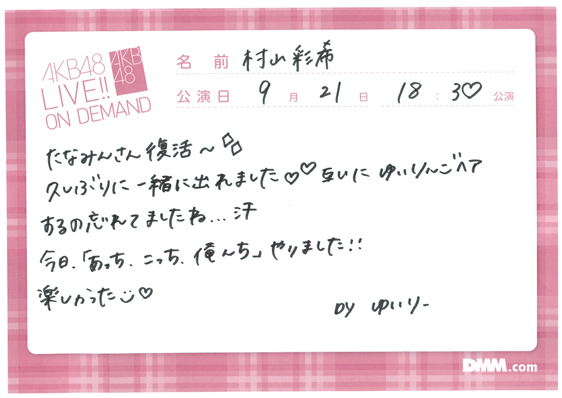 AKB48
LIVE!!
ON DEMAND
AKB
48
名前 村山彩希
公演日 9月21日 18:30公演
たなみんさん復活〜
久しぶりに一緒に出れました♡♡互いにゆいりんごヘア
するの忘れてましたね...汗
今日、「あっち、こっち、俺んち」やりました!!
楽しかった♡
by ゆいりー
DMM.com